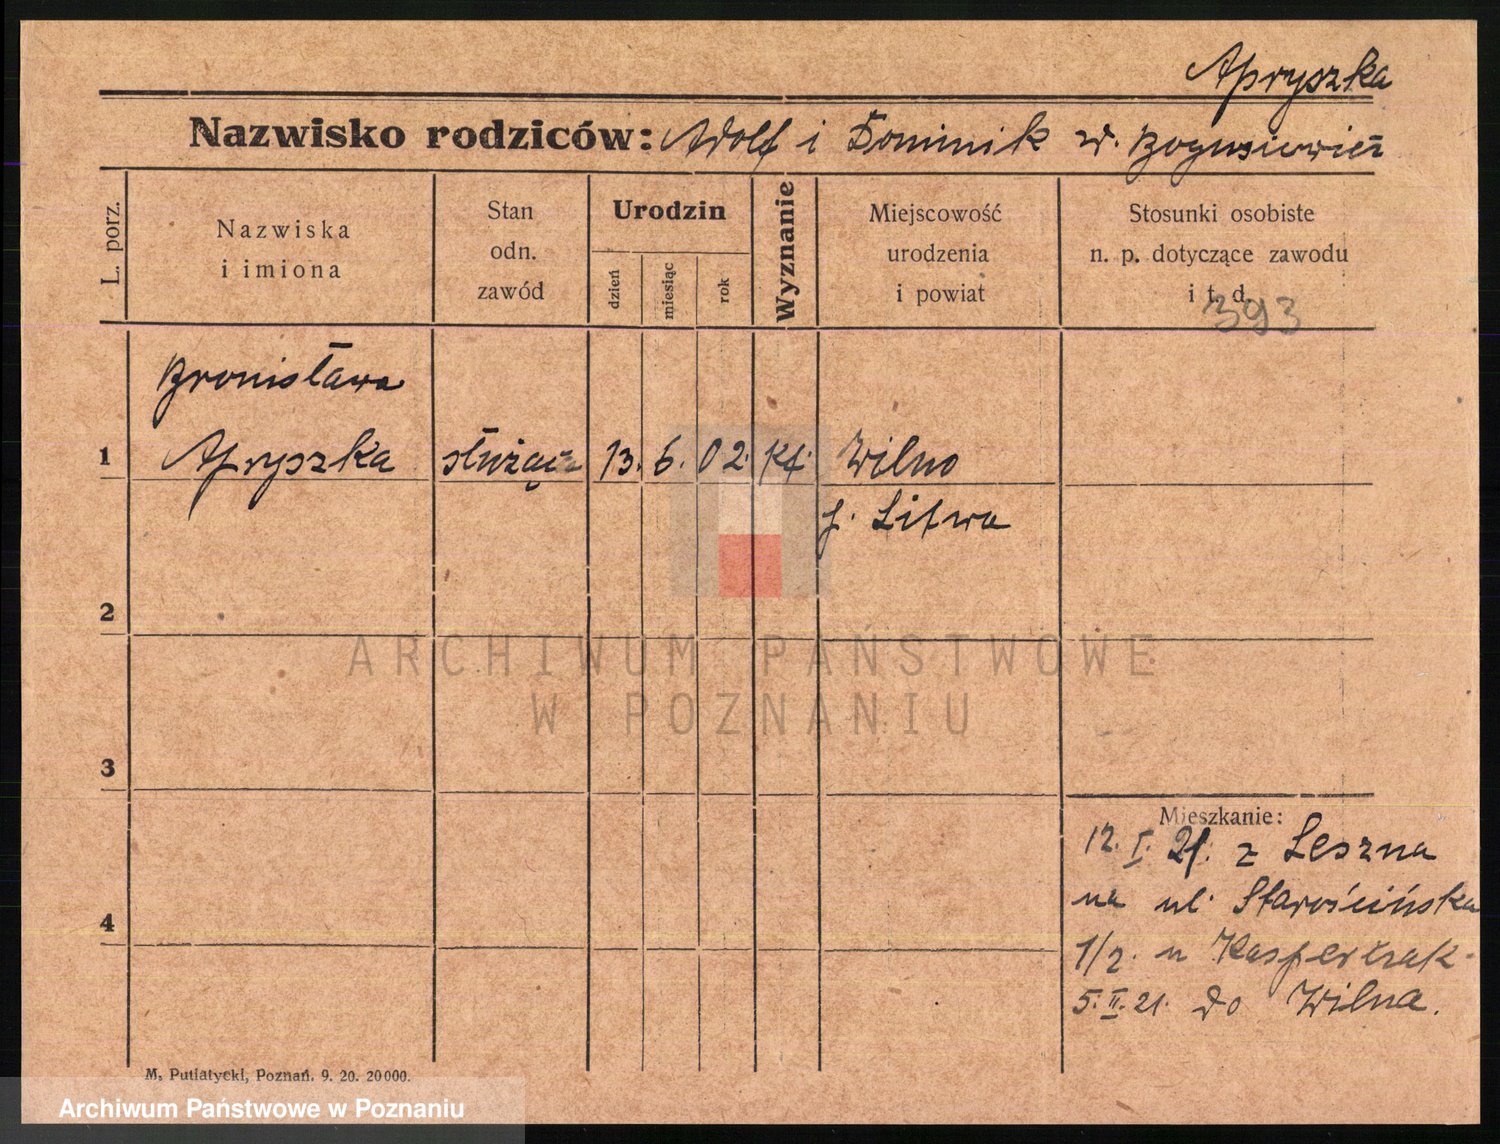 Apryszka
Nazwisko rodziców: Adolf i Dominik w. Bogusiewicz
L. porz.
Nazwiska
i imiona
Stan
odn.
zawód
Urodzin
dzień
miesiąc
rok
Wyznanie
Miejscowość
urodzenia
i powiat
Stosunki osobiste
n. p. dotyczące zawodu
i t. d.
393
Bronisława
1 Apryszka służąca 13. 6. 02. kt. Wilno
Litwa
2
3
4
ARCHIWUM PAŃSTWOWE
W POZNANIU
Mieszkanie:
12. I. 21. z Leszna
na ul. Starościńska
1/2. u Kasperzak
5. II. 21. do Wilna.
M. Putiatycki, Poznań. 9. 20. 20000.
Archiwum Państwowe w Poznaniu